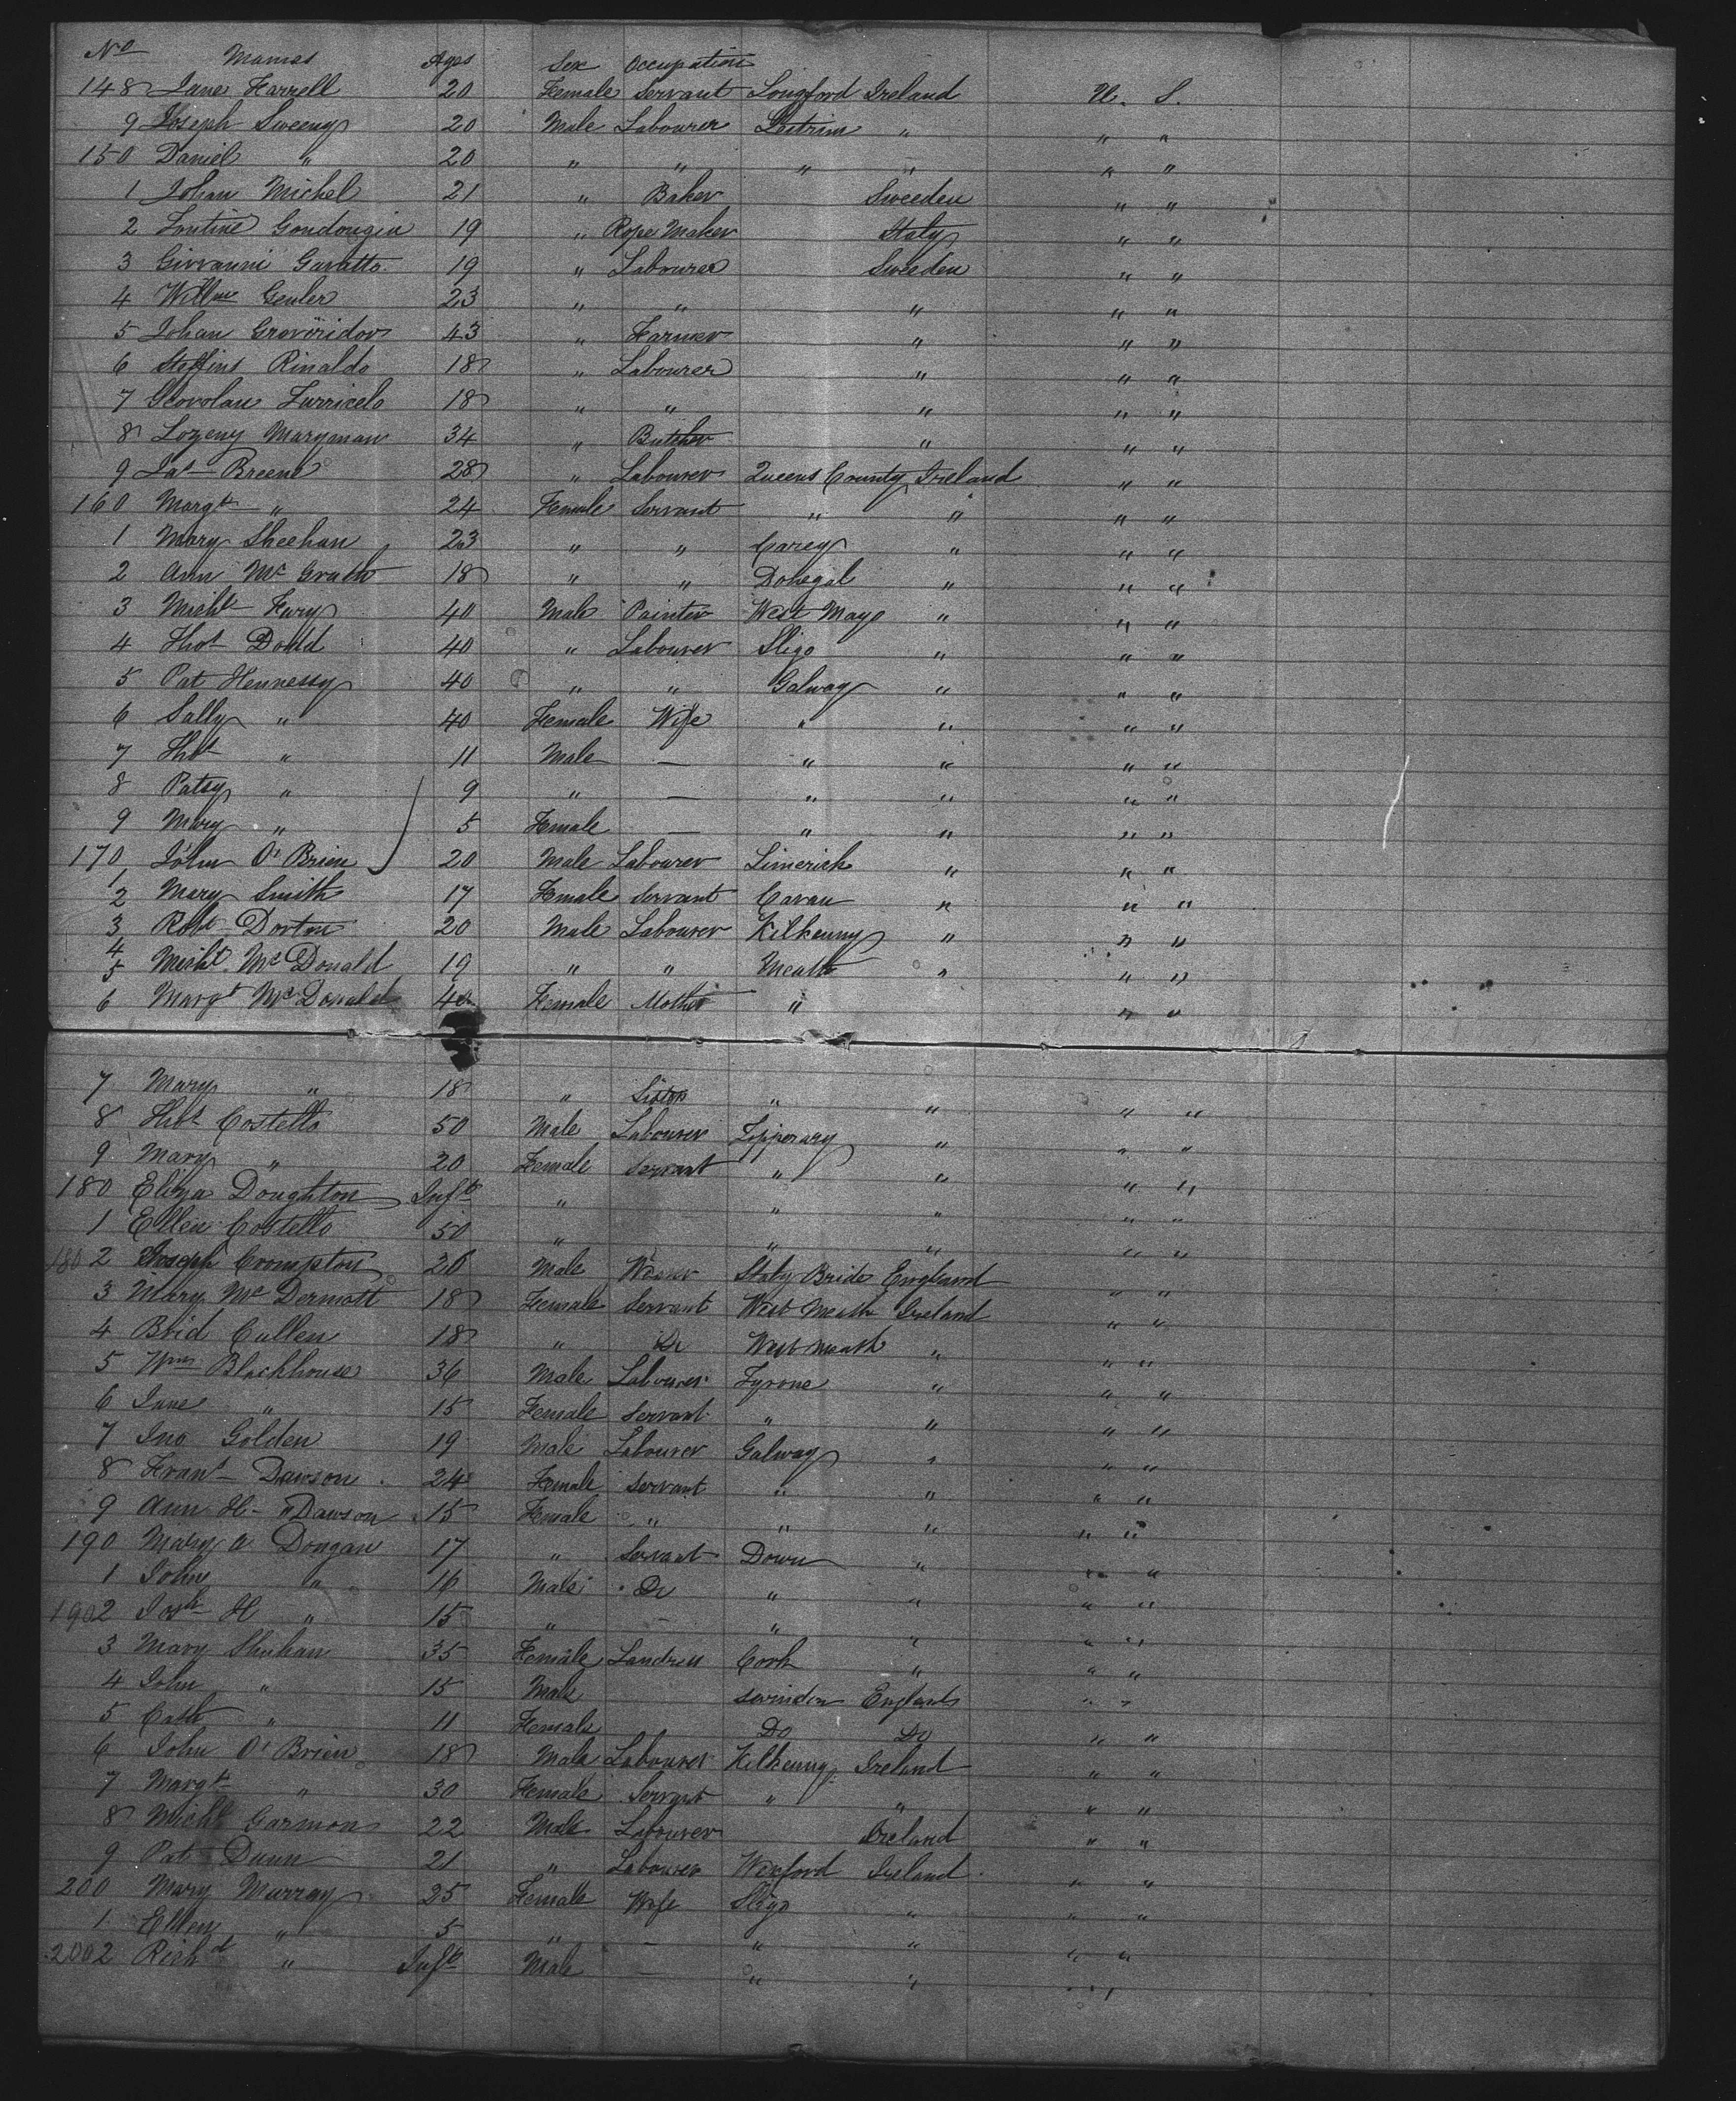 No Names Ages Sex Occupation
148 Jane Farrell 20 Female Servant Longford Ireland U. S.
9 Joseph Sweeny 20 Male Labourer Leitrim " " "
150 Daniel " 20 " " " " " "
1 Johan Michel 21 " Baker Sweeden " "
2 19 " Rope Maker Italy " "
3 Givvanni Garatto 19 " Labourer Sweeden " "
4 Willm Genler 23 " " " " "
5 Johan 43 " Farmer " " "
6 Steffins Rinaldo 18 " Labourer " " "
7 18 " " " " "
8 Lozeny Maryman 34 " Butcher " " "
9 Jas Breene 28 " Labourer Queens County Ireland " "
160 Margt " 24 Female Servant " " " "
1 Mary Sheehan 23 " " Carey " " "
2 Ann Mc Grath 18 " " Donegal " " "
3 Michl Fury 40 Male Painter West Mayo " " "
4 Thos Dodd 40 " Labourer Sligo " " "
5 Pat Hennessy 40 " " Galway " " "
6 Sally " 40 Female Wife " " " "
7 Thos " 11 Male — " " " "
8 Patsy " 9 " — " " " "
9 Mary " 5 Female — " " " "
170 John O'Brien 20 Male Labourer Limerick " " "
1
2 Mary Smith 17 Female Servant Cavan " " "
3 Robt Dorton 20 Male Labourer Kilkenny " " "
4
5 Michl Mc Donald 19 " " Meath " " "
6 Margt Mc Donald 40 Female Mother " " "
7 Mary " 18 " Sister " " " "
8 Thos Costello 50 Male Labourer Tipperary " " "
9 Mary " 20 Female Servant " " " "
180 Eliza Doughton Inft " " " " "
1 Ellen Costello 50 " " " " "
1802 Joseph Crompton 26 Male Staly Bride England " "
3 Mary Mc Dermott 18 Female Servant West Meath Ireland " "
4 Brid Cullen 18 " Do West Meath " " "
5 Wm Blackhouse 36 Male Labourer Tyrone " " "
6 Jane " 15 Female Servant " " " "
7 Jno Golden 19 Male Labourer Galway " " "
8 Frans Dawson 24 Female Servant " " " "
9 Ann H- " Dawson 15 Female " " " " "
190 Mary A Dongan 17 " Servant Down " " "
1 John " 16 Male Do " " " "
1902 Josh H " 15 " — " " " "
3 Mary Shehan 35 Female Landress Cork " " "
4 John " 15 Male Swindon England " "
5 Cath " 11 Female Do Do " "
6 John O'Brien 18 Male Labourer Kilkenny Ireland " "
7 Margt " 30 Female Servant " " " "
8 Michl Garmon 22 Male Labourer Ireland " "
9 Pat Dunn 21 " Labourer Wexford Ireland " "
200 Mary Murray 25 Female Wife Sligo " " "
1 Ellen " 5 " — " " " "
2002 Richd " Inft Male — " " " "